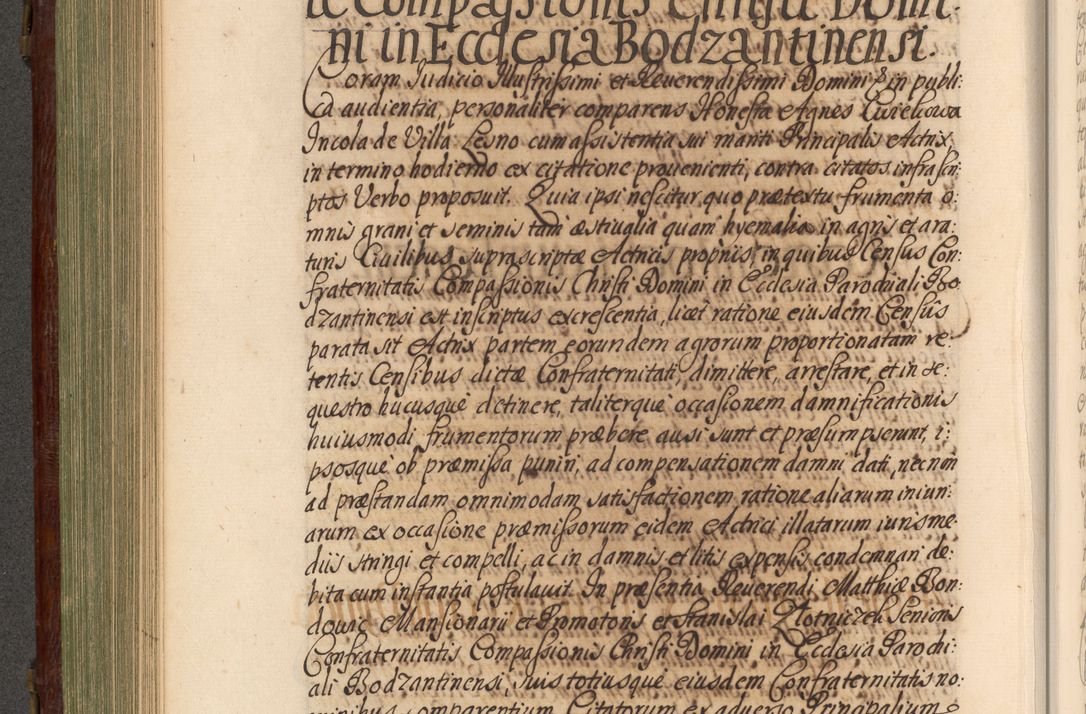 æ Compassionis Christi Domi-
ni in Ecclesia Bodzantinensi.
Coram Iudicio Illustrissimi et Reuerendissimi Domini & in publi:
ca audientia, personaliter comparens Honesta Agnes Cwiekowa
Incola de Villa Lesno cum assistentia sui mariti Principalis Actrix,
in termino hodierno ex citatione prouenienti, contra citatos infrascri:
ptos Verbo proposuit. Quia ipsi nescitur quo prætextu frumenta o:
mnis grani et seminis tam æstiualia quam hyemalia in agris et ara:
turis Ciuilibus suprascriptæ Actricis proprijs, in quibus Census Con:
fraternitatis Compassionis Christi Domini in Ecclesia Parochiali Bo:
dzantinensi est inscriptus excrescentia, licet ratione eiusdem Censûs
parata sit Actrix partem eorundem agrorum proportionatam re:
tentis Censibus dictæ Confraternitati, dimittere, arrestare, et in se:
questro hucusque detinere, taliterque occasionem damnificationis
huiusmodi frumentorum præbere ausi sunt et præsumpserunt, i:
psosque ob præmissa puniri, ad compensationem damni dati, necnon
ad præstandam omnimodam satisfactionem ratione aliarum iniuri:
arum ex occasione præmissorum eidem Actrici illatarum iuris me:
diis stringi et compelli, ac in damnis et litis expensis condemnari de:
bita cum instantia postulauit. In præsentia Reuerendi Matthiæ Bon:
dowic Mansionarii et Promotoris et Stanislai Złotniczek Senioris
Confraternitatis Compassionis Christi Domini in Ecclesia Parochi:
ali Bodzantinensi, suis totiusque eiusdem Confraternitatis no:
minibus comparentium Citatorum ex aduerso Principalium